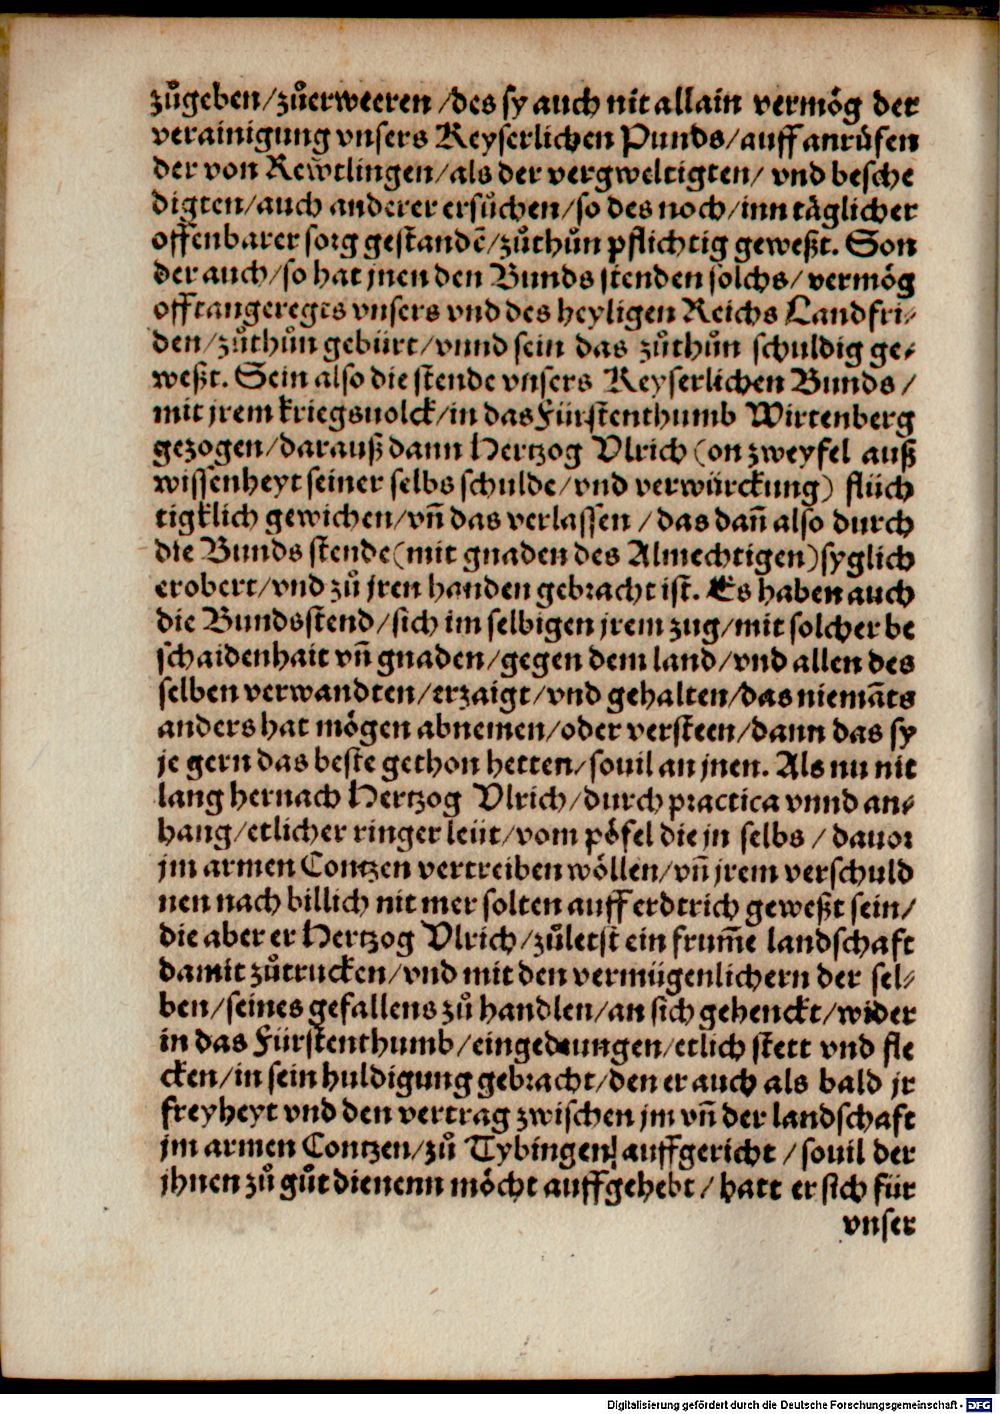 zůgeben/zůerweeren /des sy auch nit allain vermög der
verainigung vnsers Keyserlichen Punds/auff anrüfen
der von Rewtlingen/als der vergweltigten/ vnd besche
digten/auch anderer ersůchen/so des noch/inn täglicher
offenbarer sorg gestandē/zůthůn pflichtig geweßt. Son
der auch/so hat jnen den Bunds stenden solchs/ vermög
offtangeregts vnsers vnd des heyligen Reichs Landfri-
den/zůthůn gebürt/vnnd sein das zůthůn schuldig ge-
weßt. Sein also die stende vnsers Keyserlichen Bunds /
mit jrem kriegsuolck/in das Fürstenthumb Wirtenberg
gezogen/darauß dann Hertzog Vlrich (on zweyfel auß
wissenheyt seiner selbs schulde/vnd verwürckung) flüch
tigklich gewichen/vñ das verlassen /das dañ also durch
die Bunds stende(mit gnaden des Almechtigen)syglich
erobert/vnd zů jren handen gebracht ist. Es haben auch
die Bundsstend/sich im selbigen jrem zug/mit solcher be
schaidenhait vñ gnaden/gegen dem land/vnd allen des
selben verwandten/erzaigt/vnd gehalten/das niemāts
anders hat mögen abnemen/oder versteen/dann das sy
je gern das beste gethon hetten/souil an jnen. Als nu nit
lang hernach Hertzog Vlrich/durch practica vnnd an-
hang/etlicher ringer leüt/vom pöfel die jn selbs / dauor
jm armen Contzen vertreiben wöllen/vñ jrem verschuld
nen nach billich nit mer solten auff erdtrich geweßt sein/
die aber er Hertzog Vlrich/zůletst ein frum̄e landschaft
damit zůtrucken/vnd mit den vermügenlichern der sel-
ben/seines gefallens zů handlen/an sich gehenckt/wider
in das Fürstenthumb/eingedrungen/etlich stett vnd fle
cken/in sein huldigung gebracht/den er auch als bald jr
freyheyt vnd den vertrag zwischen jm vñ der landschaft
jm armen Contzen/zů Tybingen/ auffgericht /souil der
jhnen zů gůt dienenn möcht auffgehebt/ hatt er sich für
vnser
Digitalisierung gefördert durch die Deutsche Forschungsgemeinschaft - DFG